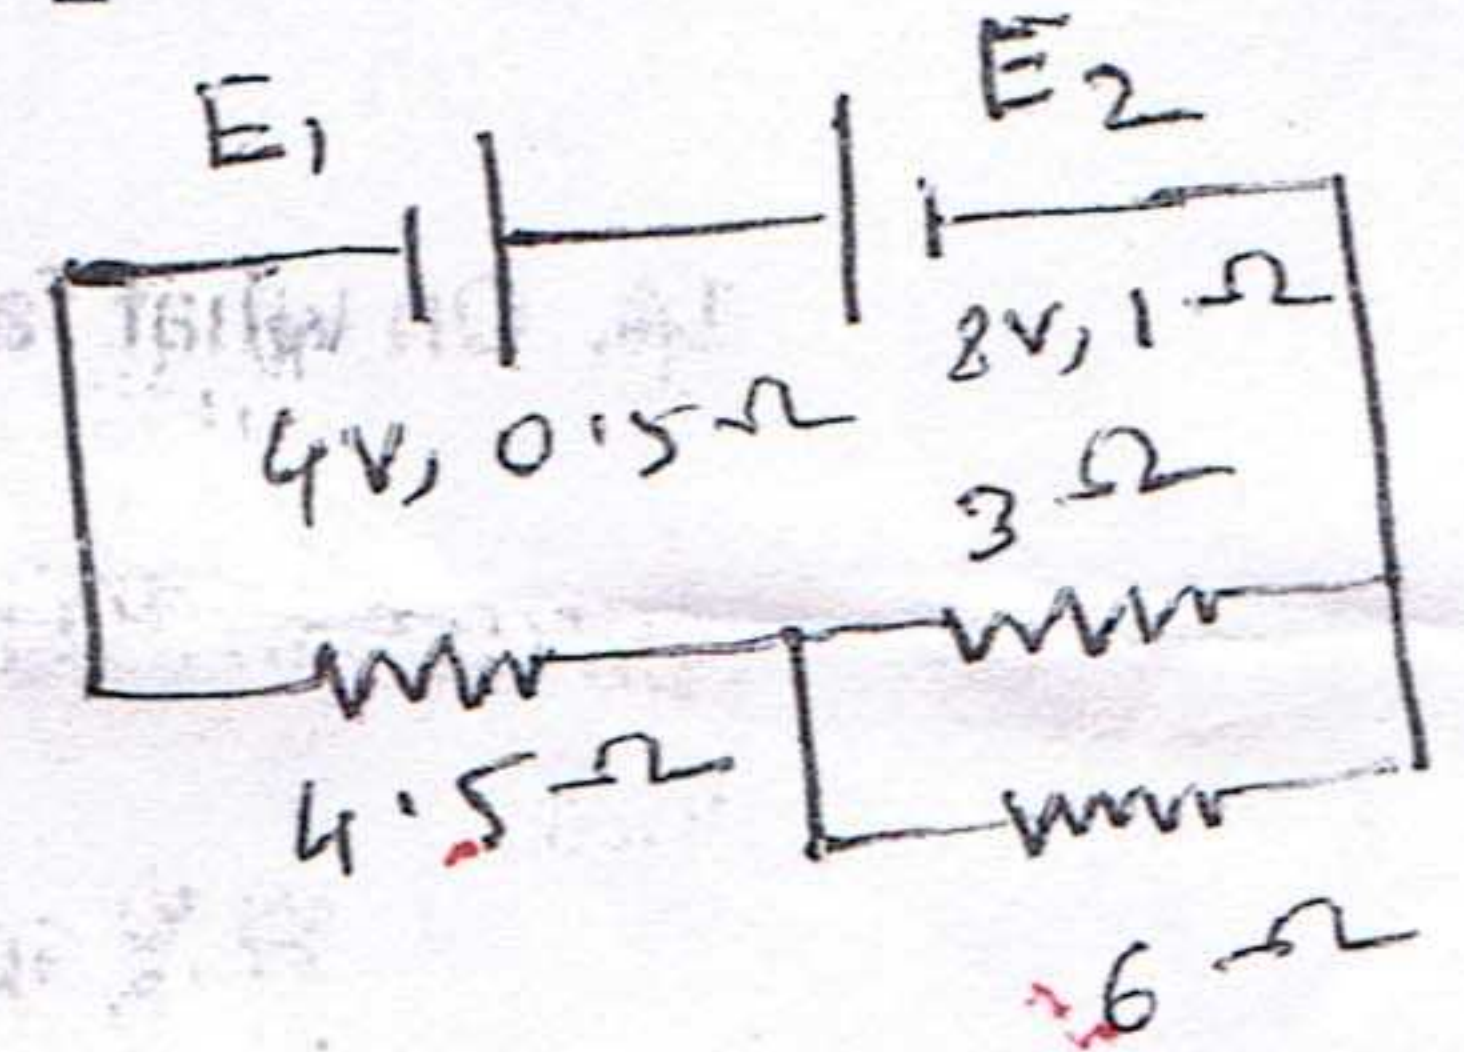 E₁
E₂
4V, 0.5Ω
8V, 1Ω
3Ω
4.5Ω
6Ω